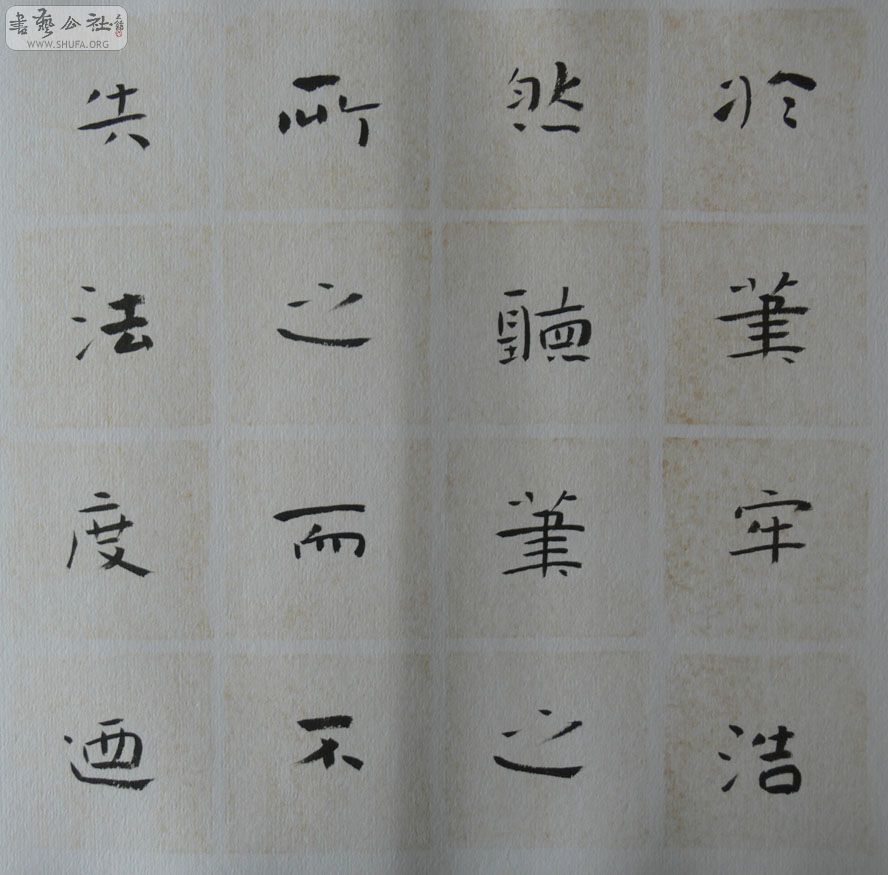 於筆牢浩
然聽筆之
所之而不
失法度迺
書藝公社
WWW.SHUFA.ORG